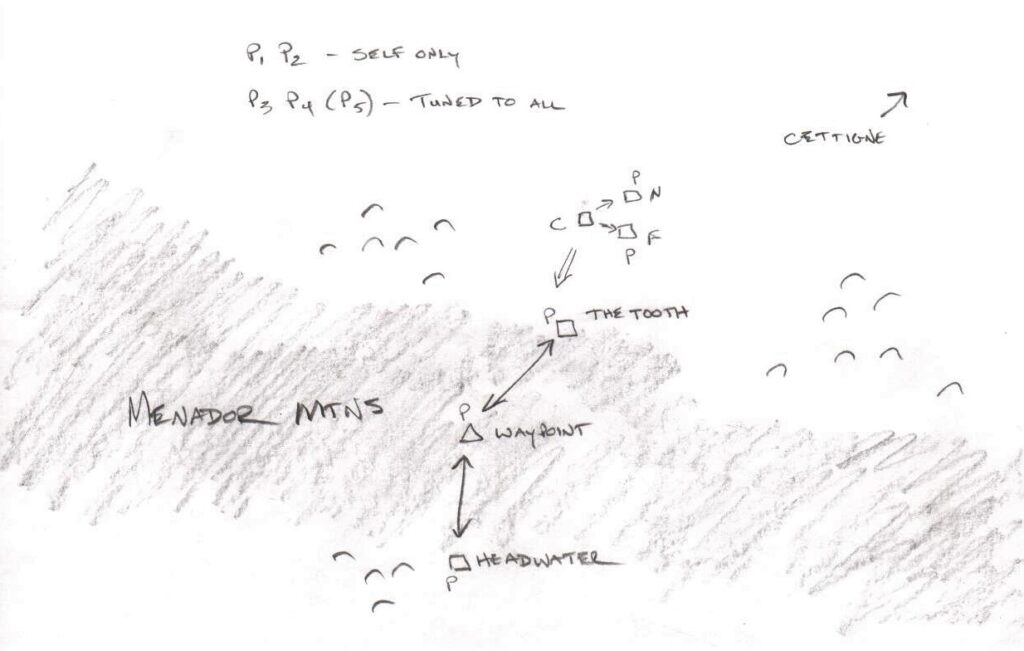 P1 P2 - SELF ONLY
P3 P4 (P5) - TUNED TO ALL
CETTIGNE
P
N
C
F
P
P THE TOOTH
MENADOR MTNS
P
WAYPOINT
HEADWATER
P